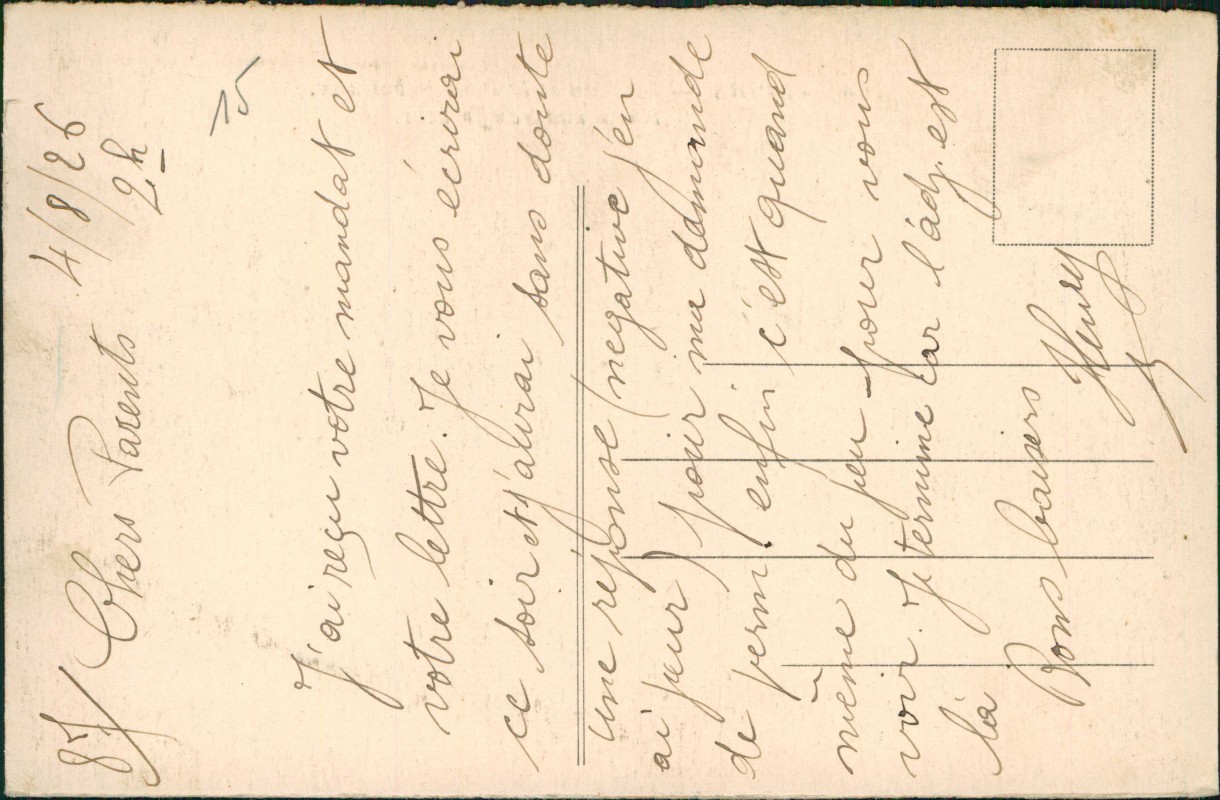 87/ Chers Parents 4/8/26
2h
J'ai reçu votre mandat et
votre lettre. Je vous écrirai
ce soir et j'aurai sans doute
une réponse (negative j'en
ai peur) pour ma damande
de perm. enfin c'est quand
même du peu pour vous
voir. Je termine car l'adj. est
là
Bons baisers
Henry